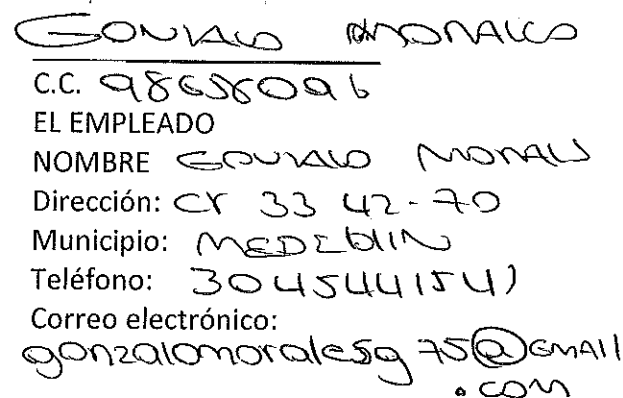 GONZALO MORALES
C.C. 98658096
EL EMPLEADO
NOMBRE GONZALO MORALES
Dirección: Cr 33 42-70
Municipio: MEDELLIN
Teléfono: 3045441541
Correo electrónico:
gonzalomoralesg75@GMAIl
.com